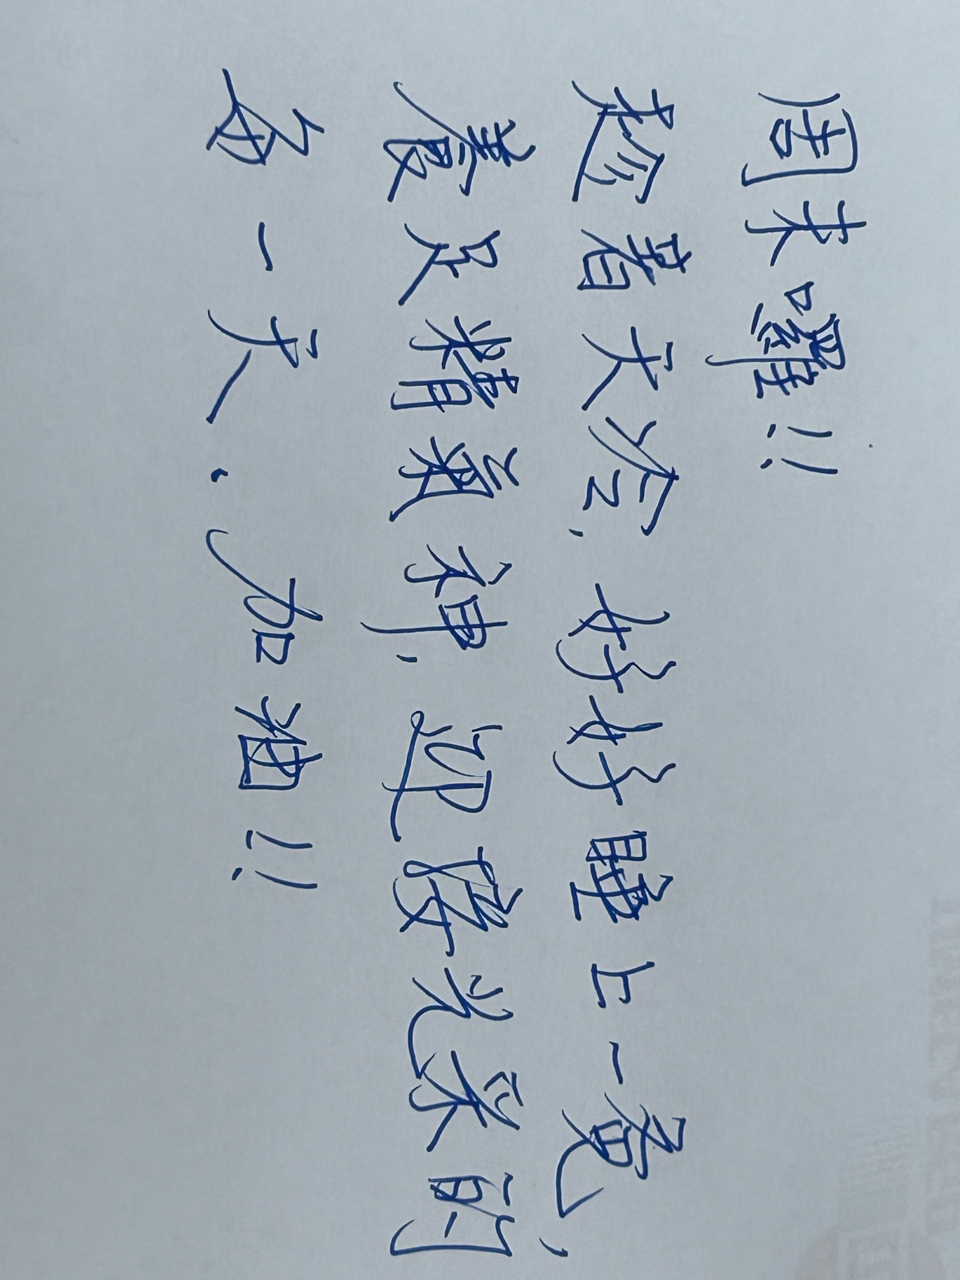 周末囉!!
趁着天冷,好好睡上一覺,
養足精氣神,迎接光采的
每一天.加油!!